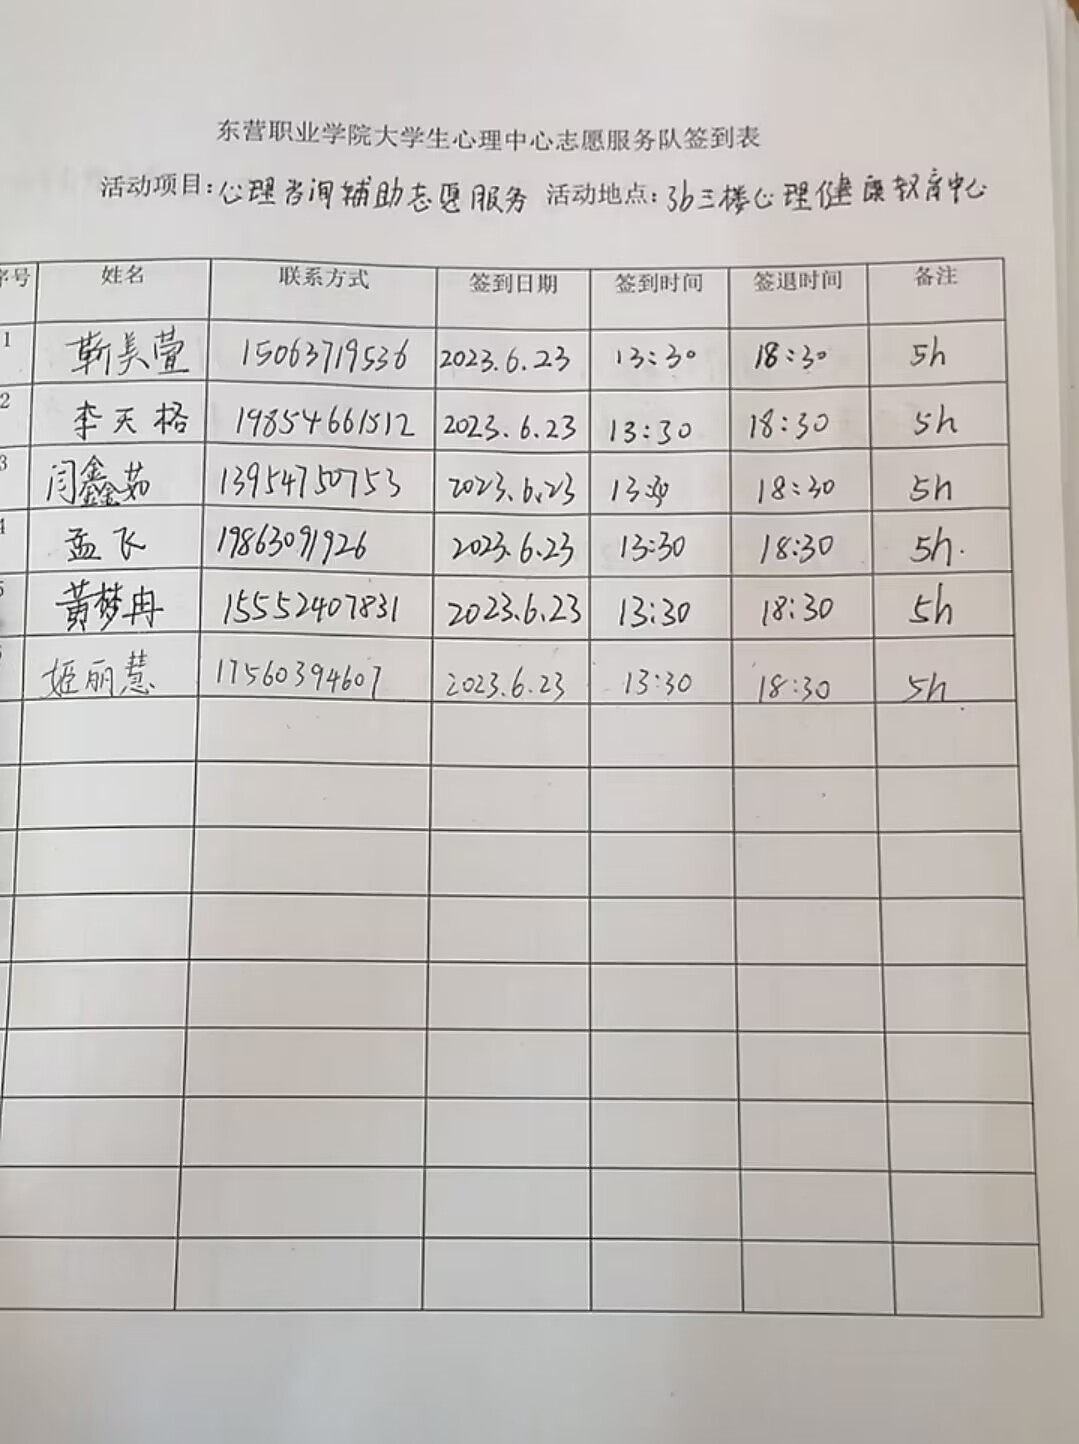 东营职业学院大学生心理中心志愿服务队签到表
活动项目：心理咨询辅助志愿服务 活动地点：3b三楼心理健康教育中心
序号 姓名 联系方式 签到日期 签到时间 签退时间 备注
1 靳美萱 15063719536 2023.6.23 13:30 18:30 5h
2 李天格 19854661512 2023.6.23 13:30 18:30 5h
3 闫鑫茹 13954750753 2023.6.23 13:30 18:30 5h
4 孟飞 19863091926 2023.6.23 13:30 18:30 5h.
5 黄梦冉 15552407831 2023.6.23 13:30 18:30 5h
姬丽慧 17560394607 2023.6.23 13:30 18:30 5h